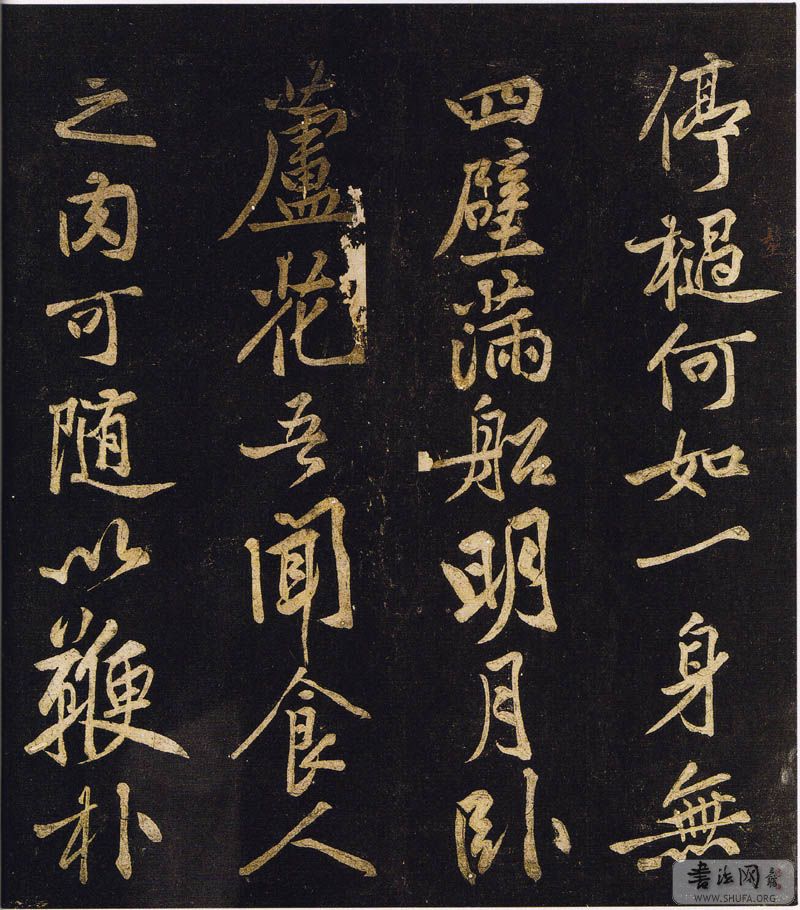 停檛何如一身無
四壁滿船明月卧
蘆花吾聞食人
之肉可随以鞭朴
書法网
WWW.SHUFA.ORG